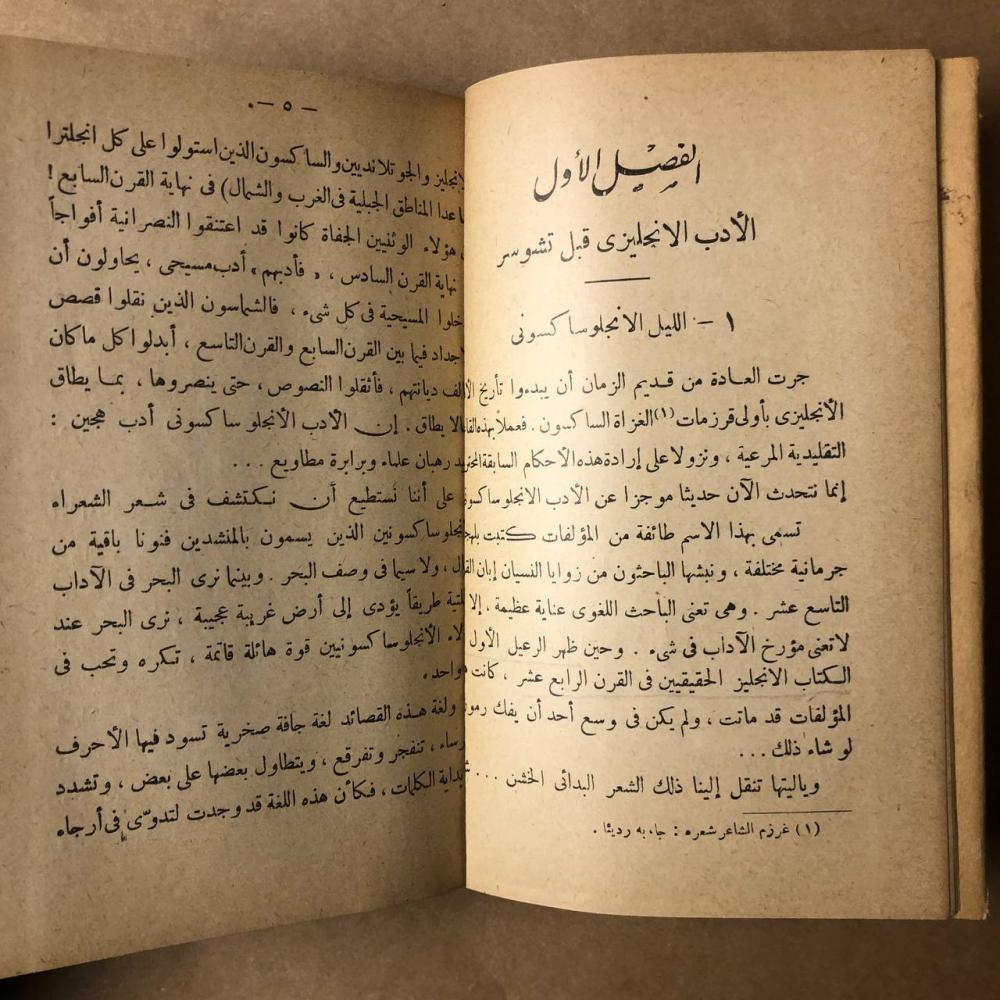 الفصل الأول
الأدب الانجليزى قبل تشوسر
١ – الليل الانجلوساكسونى
جرت العادة من قديم الزمان أن يبدءوا تأريخ
الأنجليزى بأولى قرزمات (١) الغزاة الساكسون . فعملاً بهذه
التقليدية المرعية ، ونزولا على إرادة هذه الأحكام السابقة
إنما نتحدث الآن حديثا موجزا عن الأدب الانجلوساكسونى
تسمى بهذا الاسم طائفة من المؤلفات كتبت
جرمانية مختلفة ، ونبشها الباحثون من زوايا النسيان إبان
التاسع عشر . وهى تعنى الباحث اللغوى عناية عظيمة ،
لا تعنى مؤرخ الآداب فى شىء . وحين ظهر الرعيل الأول
الكتاب الانجليز الحقيقيين فى القرن الرابع عشر ، كانت
المؤلفات قد ماتت ، ولم يكن فى وسع أحد أن يفك
لو شاء ذلك ...
وياليتها تنقل إلينا ذلك الشعر البدائى الخشن ...
(١) غرزم الشاعر شعره : جاء به رديئا .
– ٥ –
والجوتلانديين والساكسون الذين استولوا على كل انجلترا
عدا المناطق الجبلية فى الغرب والشمال) فى نهاية القرن السابع !
هؤلاء الوثنيين الجفاة كانوا قد اعتنقوا النصرانية أفواجاً
نهاية القرن السادس ، « فأدبهم » أدب مسيحى ، يحاولون أن
المسيحية فى كل شىء ، فالشماسون الذين نقلوا قصص
فيما بين القرن السابع والقرن التاسع ، أبدلوا كل ما كان
ديانتهم ، فأثقلوا النصوص ، حتى ينصروها ، بما يطاق
لا يطاق . إن الأدب الأنجلوساكسونى أدب هجين :
رهبان علماء وبرابرة مطاويع ...
على أننا نستطيع أن نكتشف فى شعر الشعراء
الذين يسمون بالمنشدين فنونا باقية من
، ولا سيما فى وصف البحر . وبينما نرى البحر فى الآداب
طريقاً يؤدى إلى أرض غريبة عجيبة ، نرى البحر عند
الأنجلوساكسونيين قوة هائلة قاتمة ، تكره وتحب فى
واحد .
ولغة هذه القصائد لغة جافة صخرية تسود فيها الأحرف
، تنفجر وتفرقع ، ويتطاول بعضها على بعض ، وتشدد
بداية الكلمات ، فكأن هذه اللغة قد وجدت لتدوّى فى أرجاء